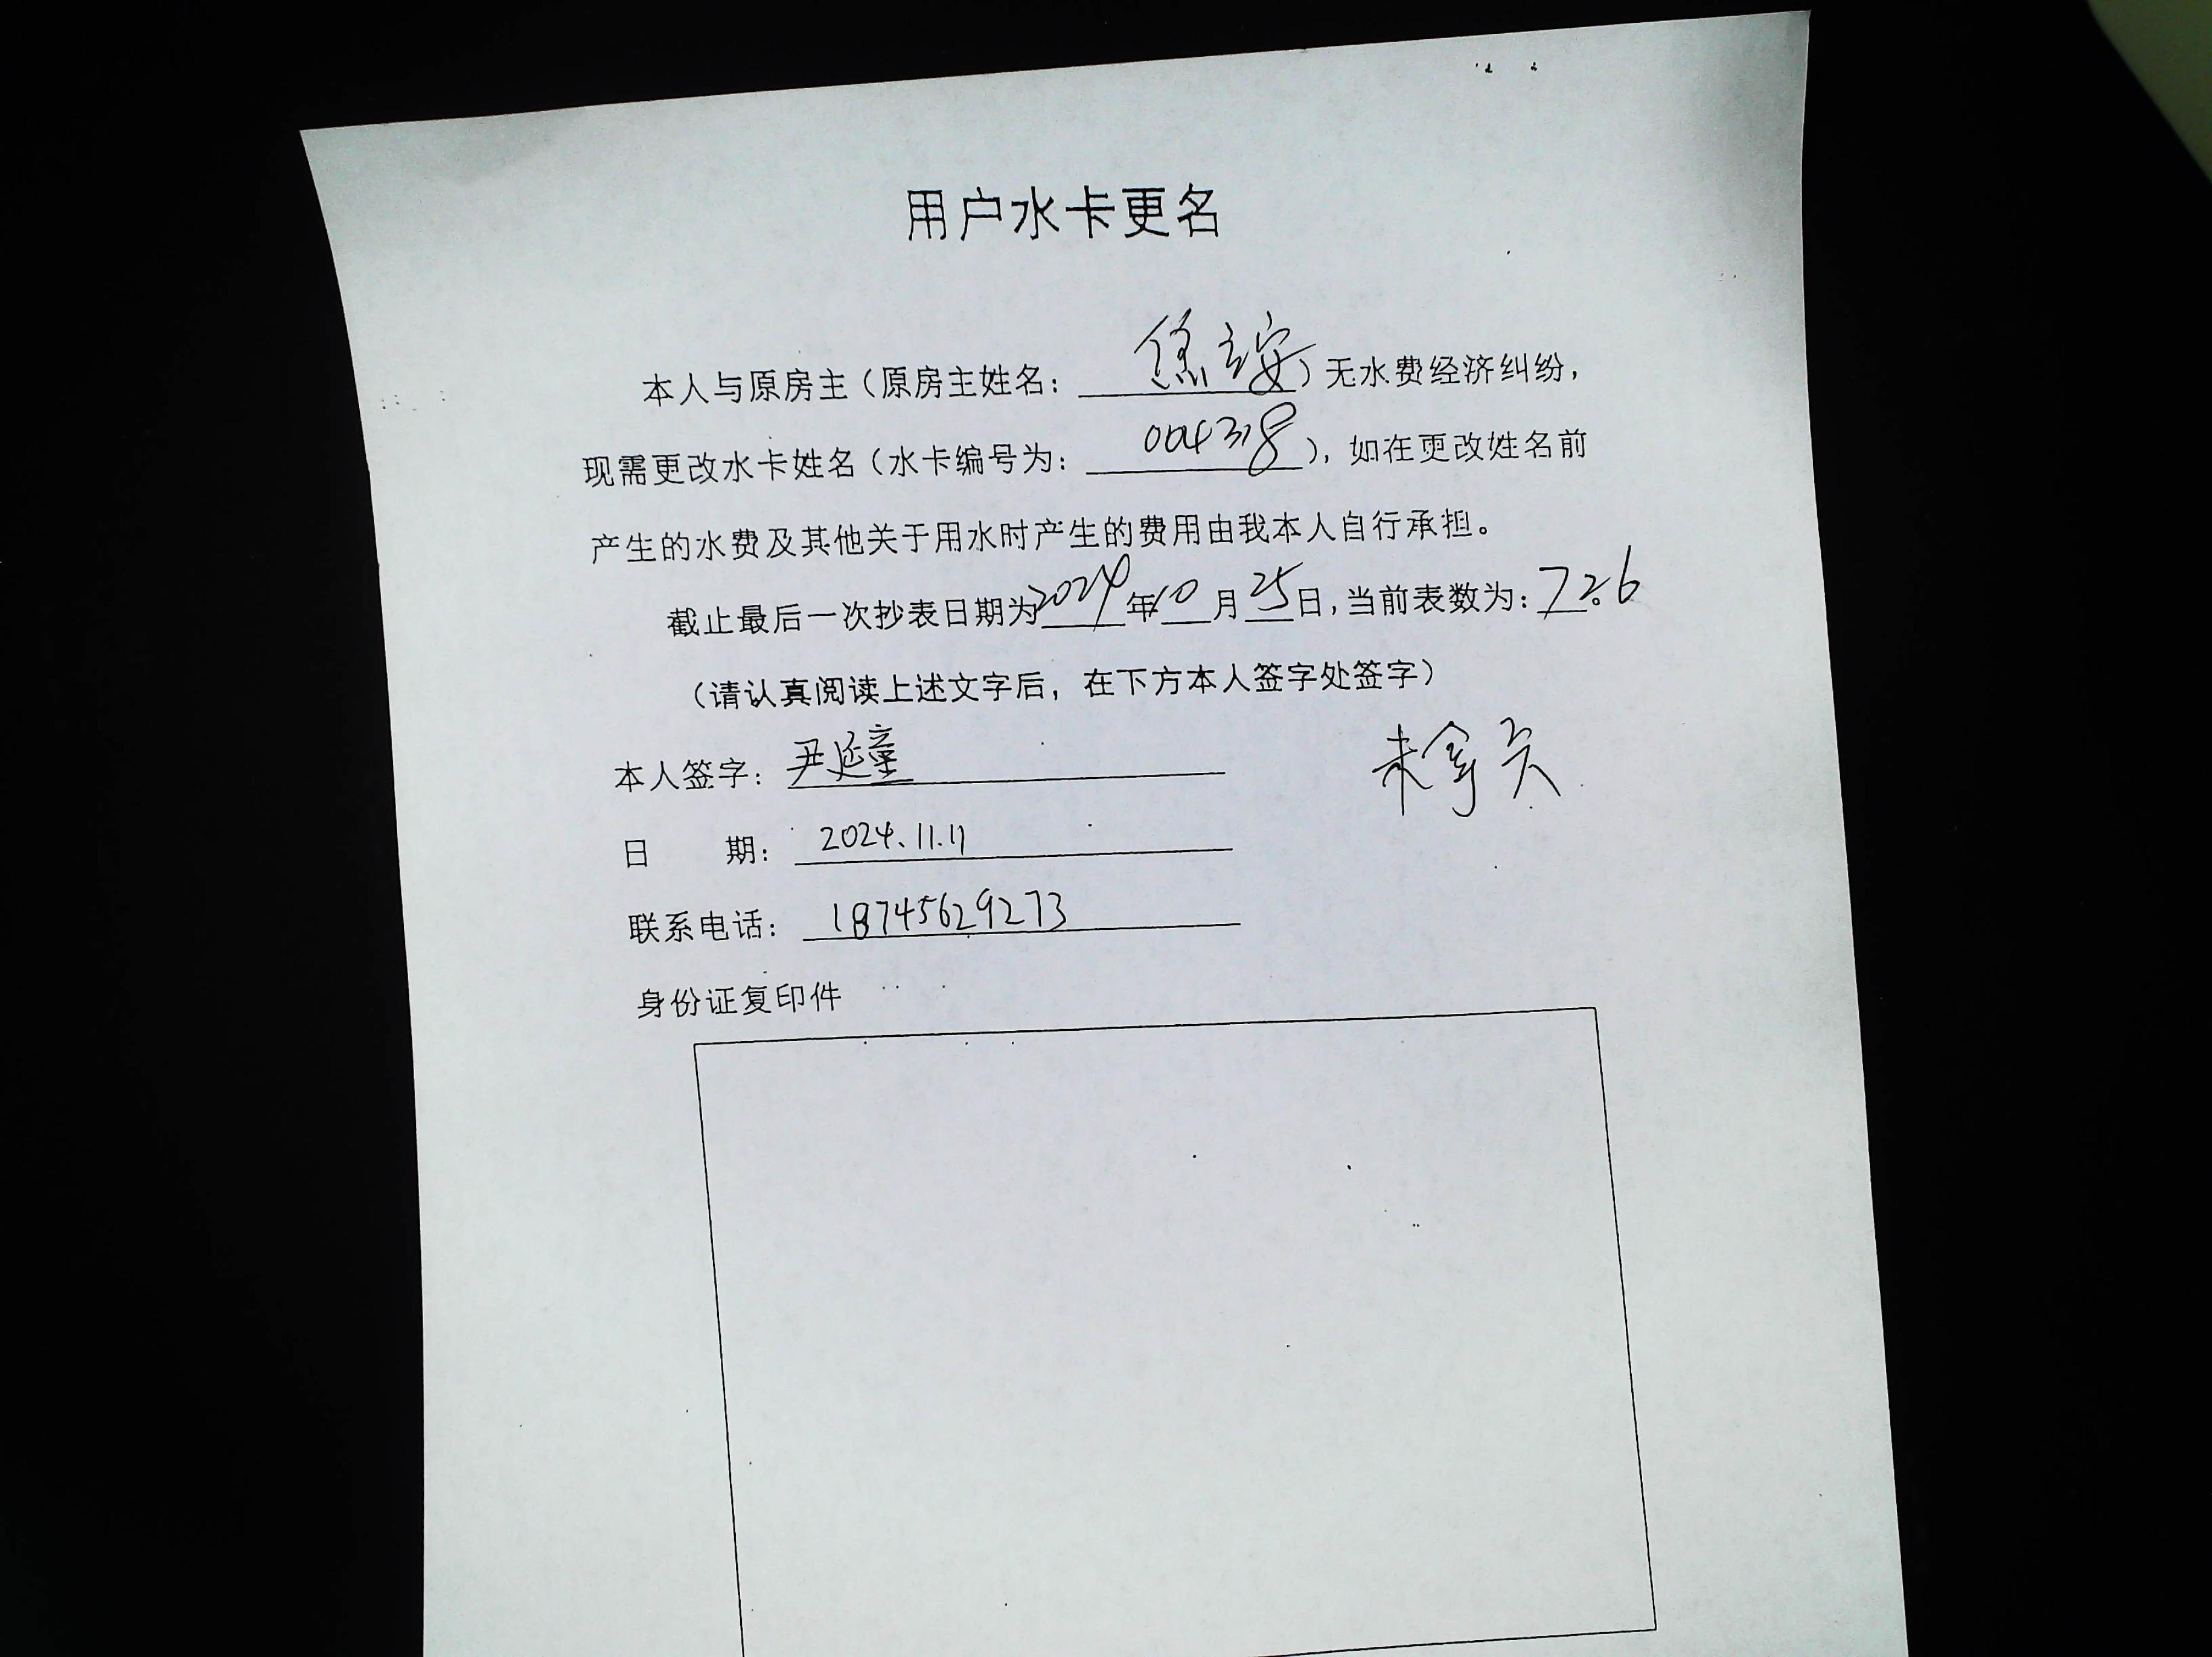 用户水卡更名
本人与原房主（原房主姓名：）无水费经济纠纷，
现需更改水卡姓名（水卡编号为：004318），如在更改姓名前
产生的水费及其他关于用水时产生的费用由我本人自行承担。
截止最后一次抄表日期为2024年10月25日，当前表数为：726
（请认真阅读上述文字后，在下方本人签字处签字）
本人签字：尹延童
未拿卡
日期：2024.11.11
联系电话：18745629273
身份证复印件